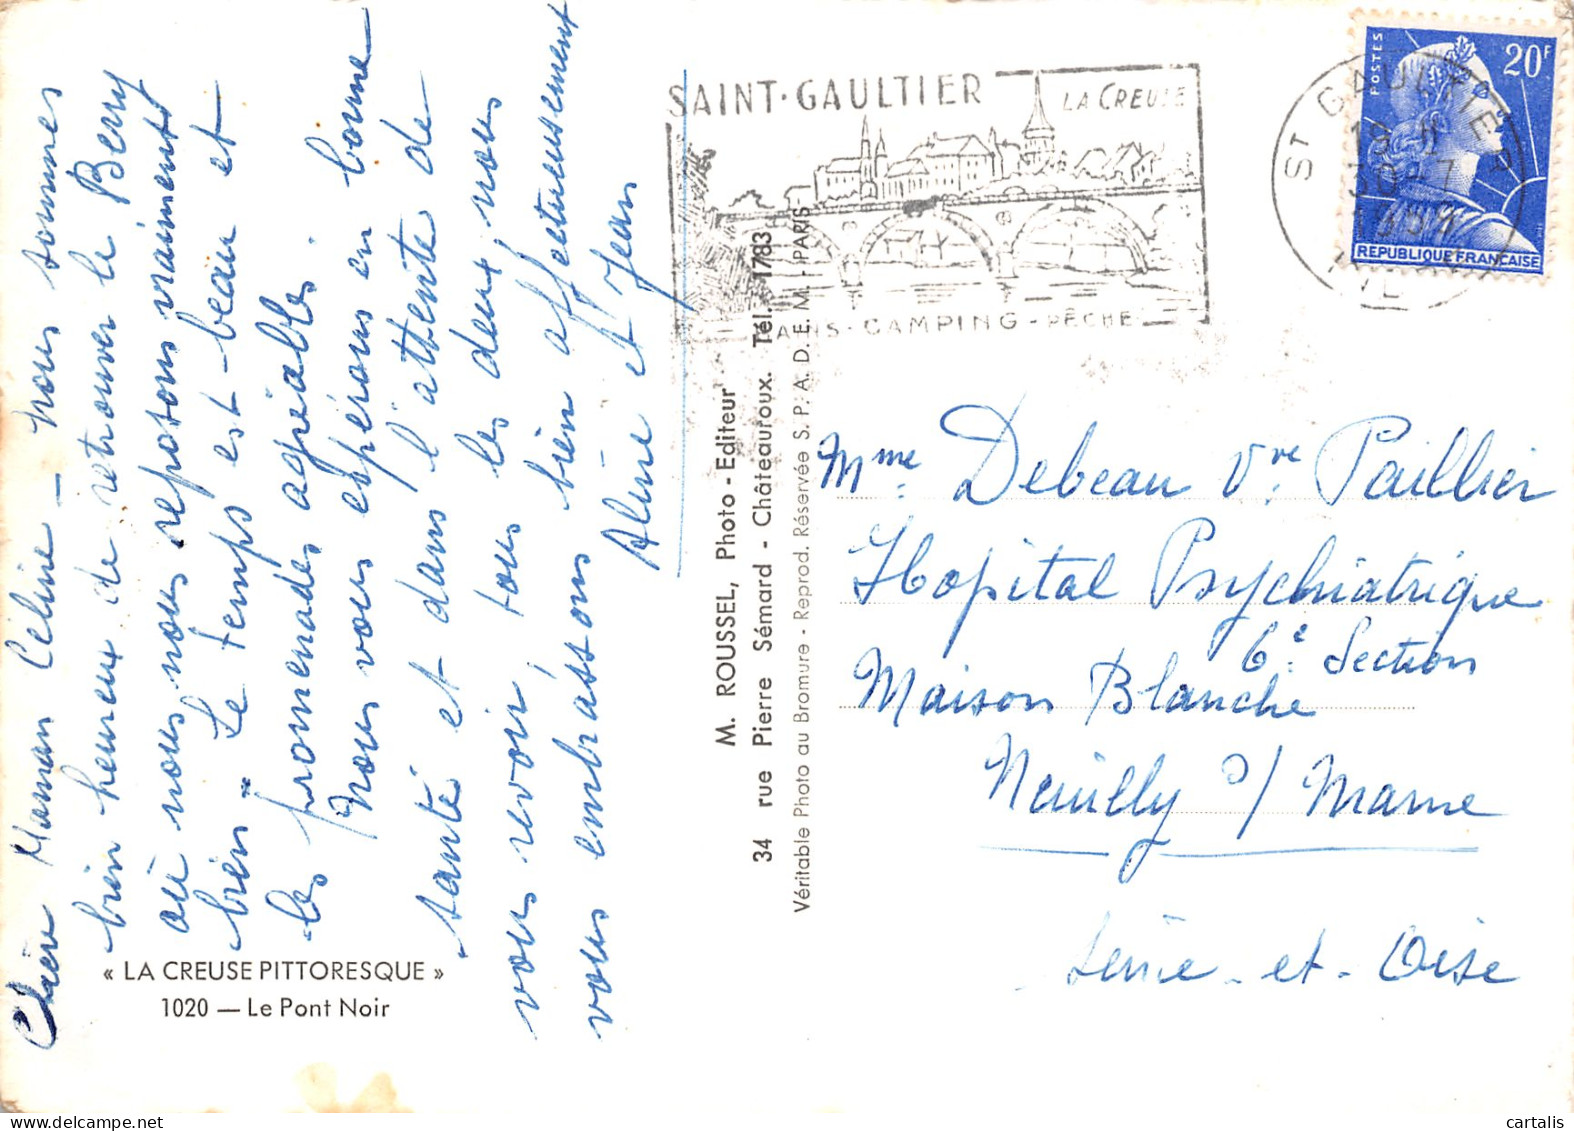 Chère Maman Céline - nous sommes
bien heureux de retrouver le Berry
où nous nous reposons vraiment
bien - Le temps est beau et
les promenades agréables.
Nous vous espérons en bonne
santé et dans l'attente de
vous revoir, tous les deux nous
vous embrassons bien affectueusement
Aline et Jean
« LA CREUSE PITTORESQUE »
1020 — Le Pont Noir
M. ROUSSEL, Photo - Editeur
34 rue Pierre Sémard - Châteauroux. Tél. 1783
Véritable Photo au Bromure - Reprod. Réservée S. P. A. D. E. M. - PARIS
SAINT-GAULTIER
LA CREUSE
CAMPING - PÊCHE
ST GAULTIER
30-7
POSTES
20F
REPUBLIQUE FRANÇAISE
Mme Debeau Vve Paillier
Hopital Psychiatrique
6e Section
Maison Blanche
Neuilly s/ Marne
Seine-et-Oise
cartalis.com